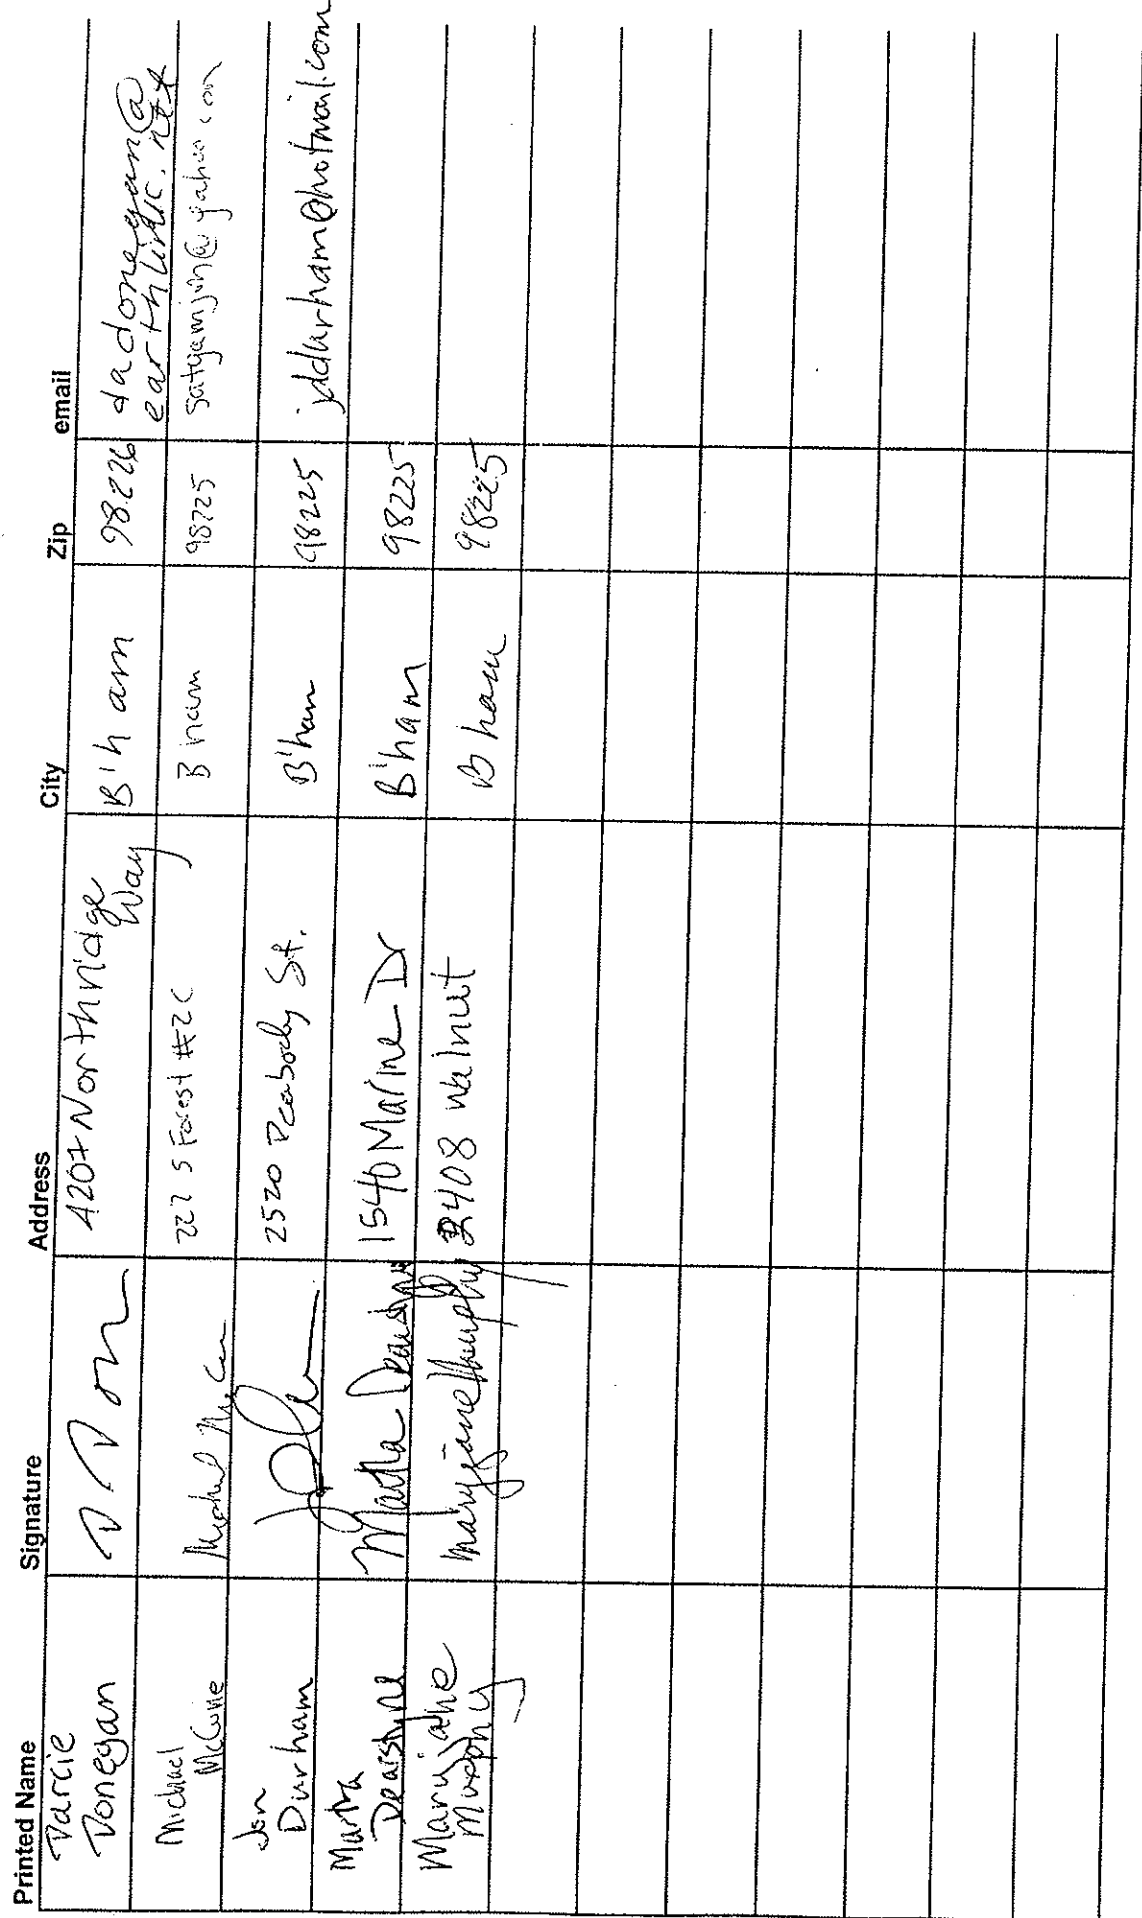 Printed Name Signature Address City Zip email
Darcie Donegan 4207 Northridge Way B'ham 98226 dadonegan@earthlink.net
Michael 222 S Forest #2C B'ham 98225 satyamjon@yahoo.com
Jon Durham 2520 Peabody St. B'ham 98225 jddurham@hotmail.com
Martha Dearstyne Martha Dearstyne 1540 Marine Dr B'ham 98225
Maryjane Murphy Maryjane Murphy 2408 Walnut Bham 98225